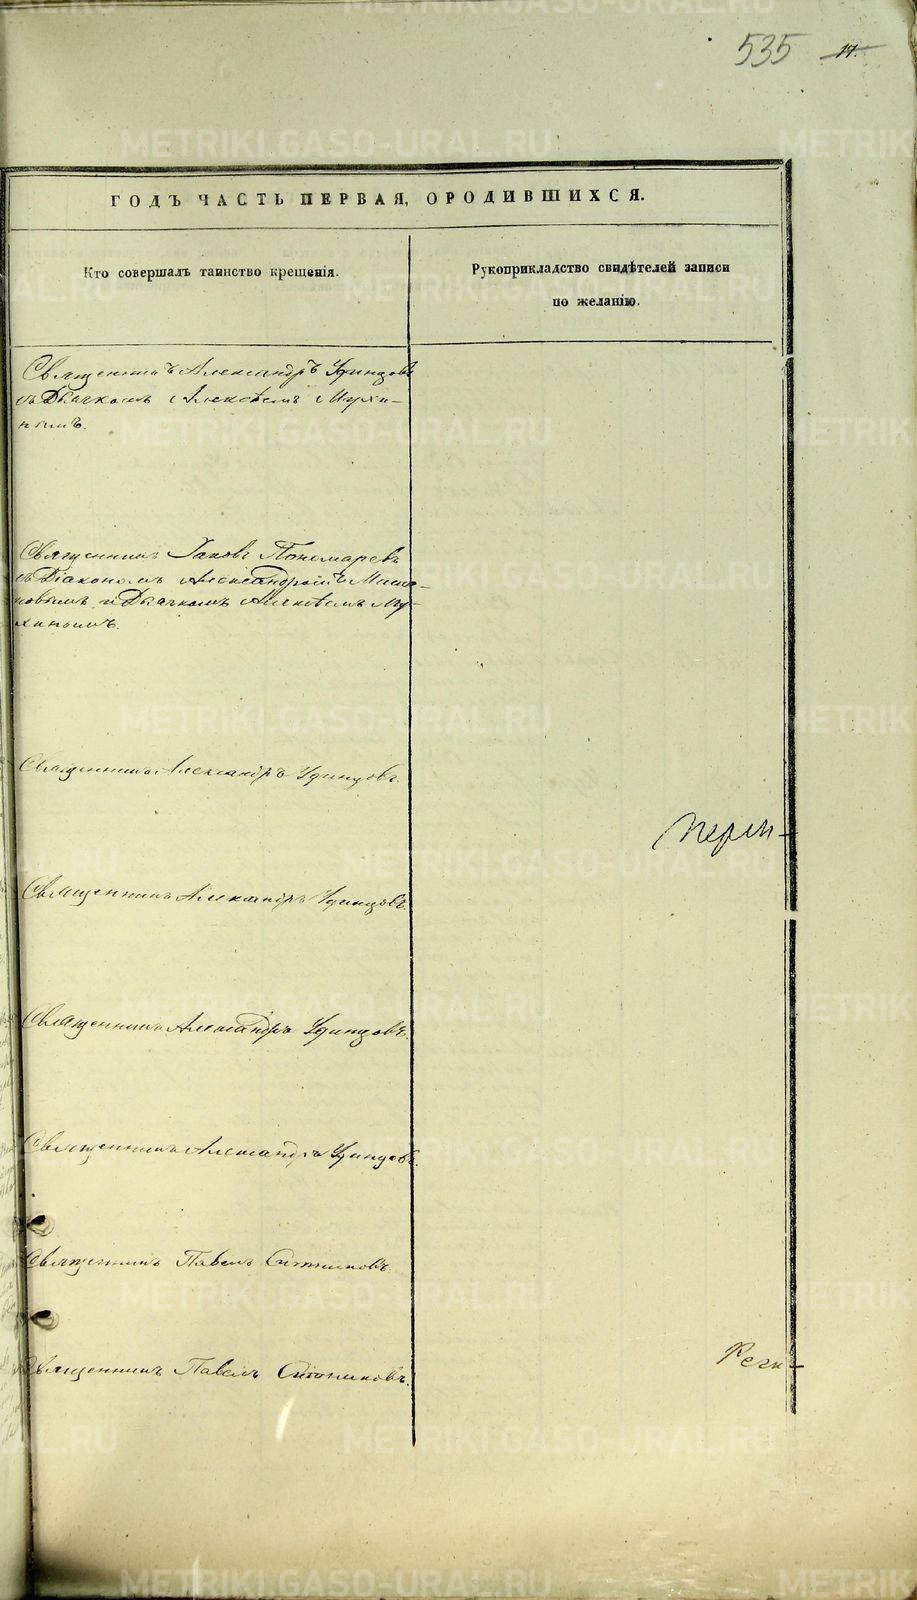 535 17.
ГОДЪ ЧАСТЬ ПЕРВАЯ, ОРОДИВШИХСЯ.
Кто совершалъ таинство крещенія.
Рукоприкладство свидѣтелей записи
по желанію.
Священникъ Александръ Удинцовъ
съ Дьячкомъ Алексѣемъ Мухи-
нымъ.
Священникъ Іаковъ Пономаревъ
съ Діакономъ Александромъ
новымъ и Дьячкомъ Алексѣемъ Му-
хинымъ.
Священникъ Александръ Удинцовъ.
Священникъ Александръ Удинцовъ.
Священникъ Александръ Удинцовъ.
Священникъ Александръ Удинцовъ.
Священникъ Павелъ Ситниковъ.
Священникъ Павелъ Ситниковъ.
METRIKI.GASO-URAL.RU